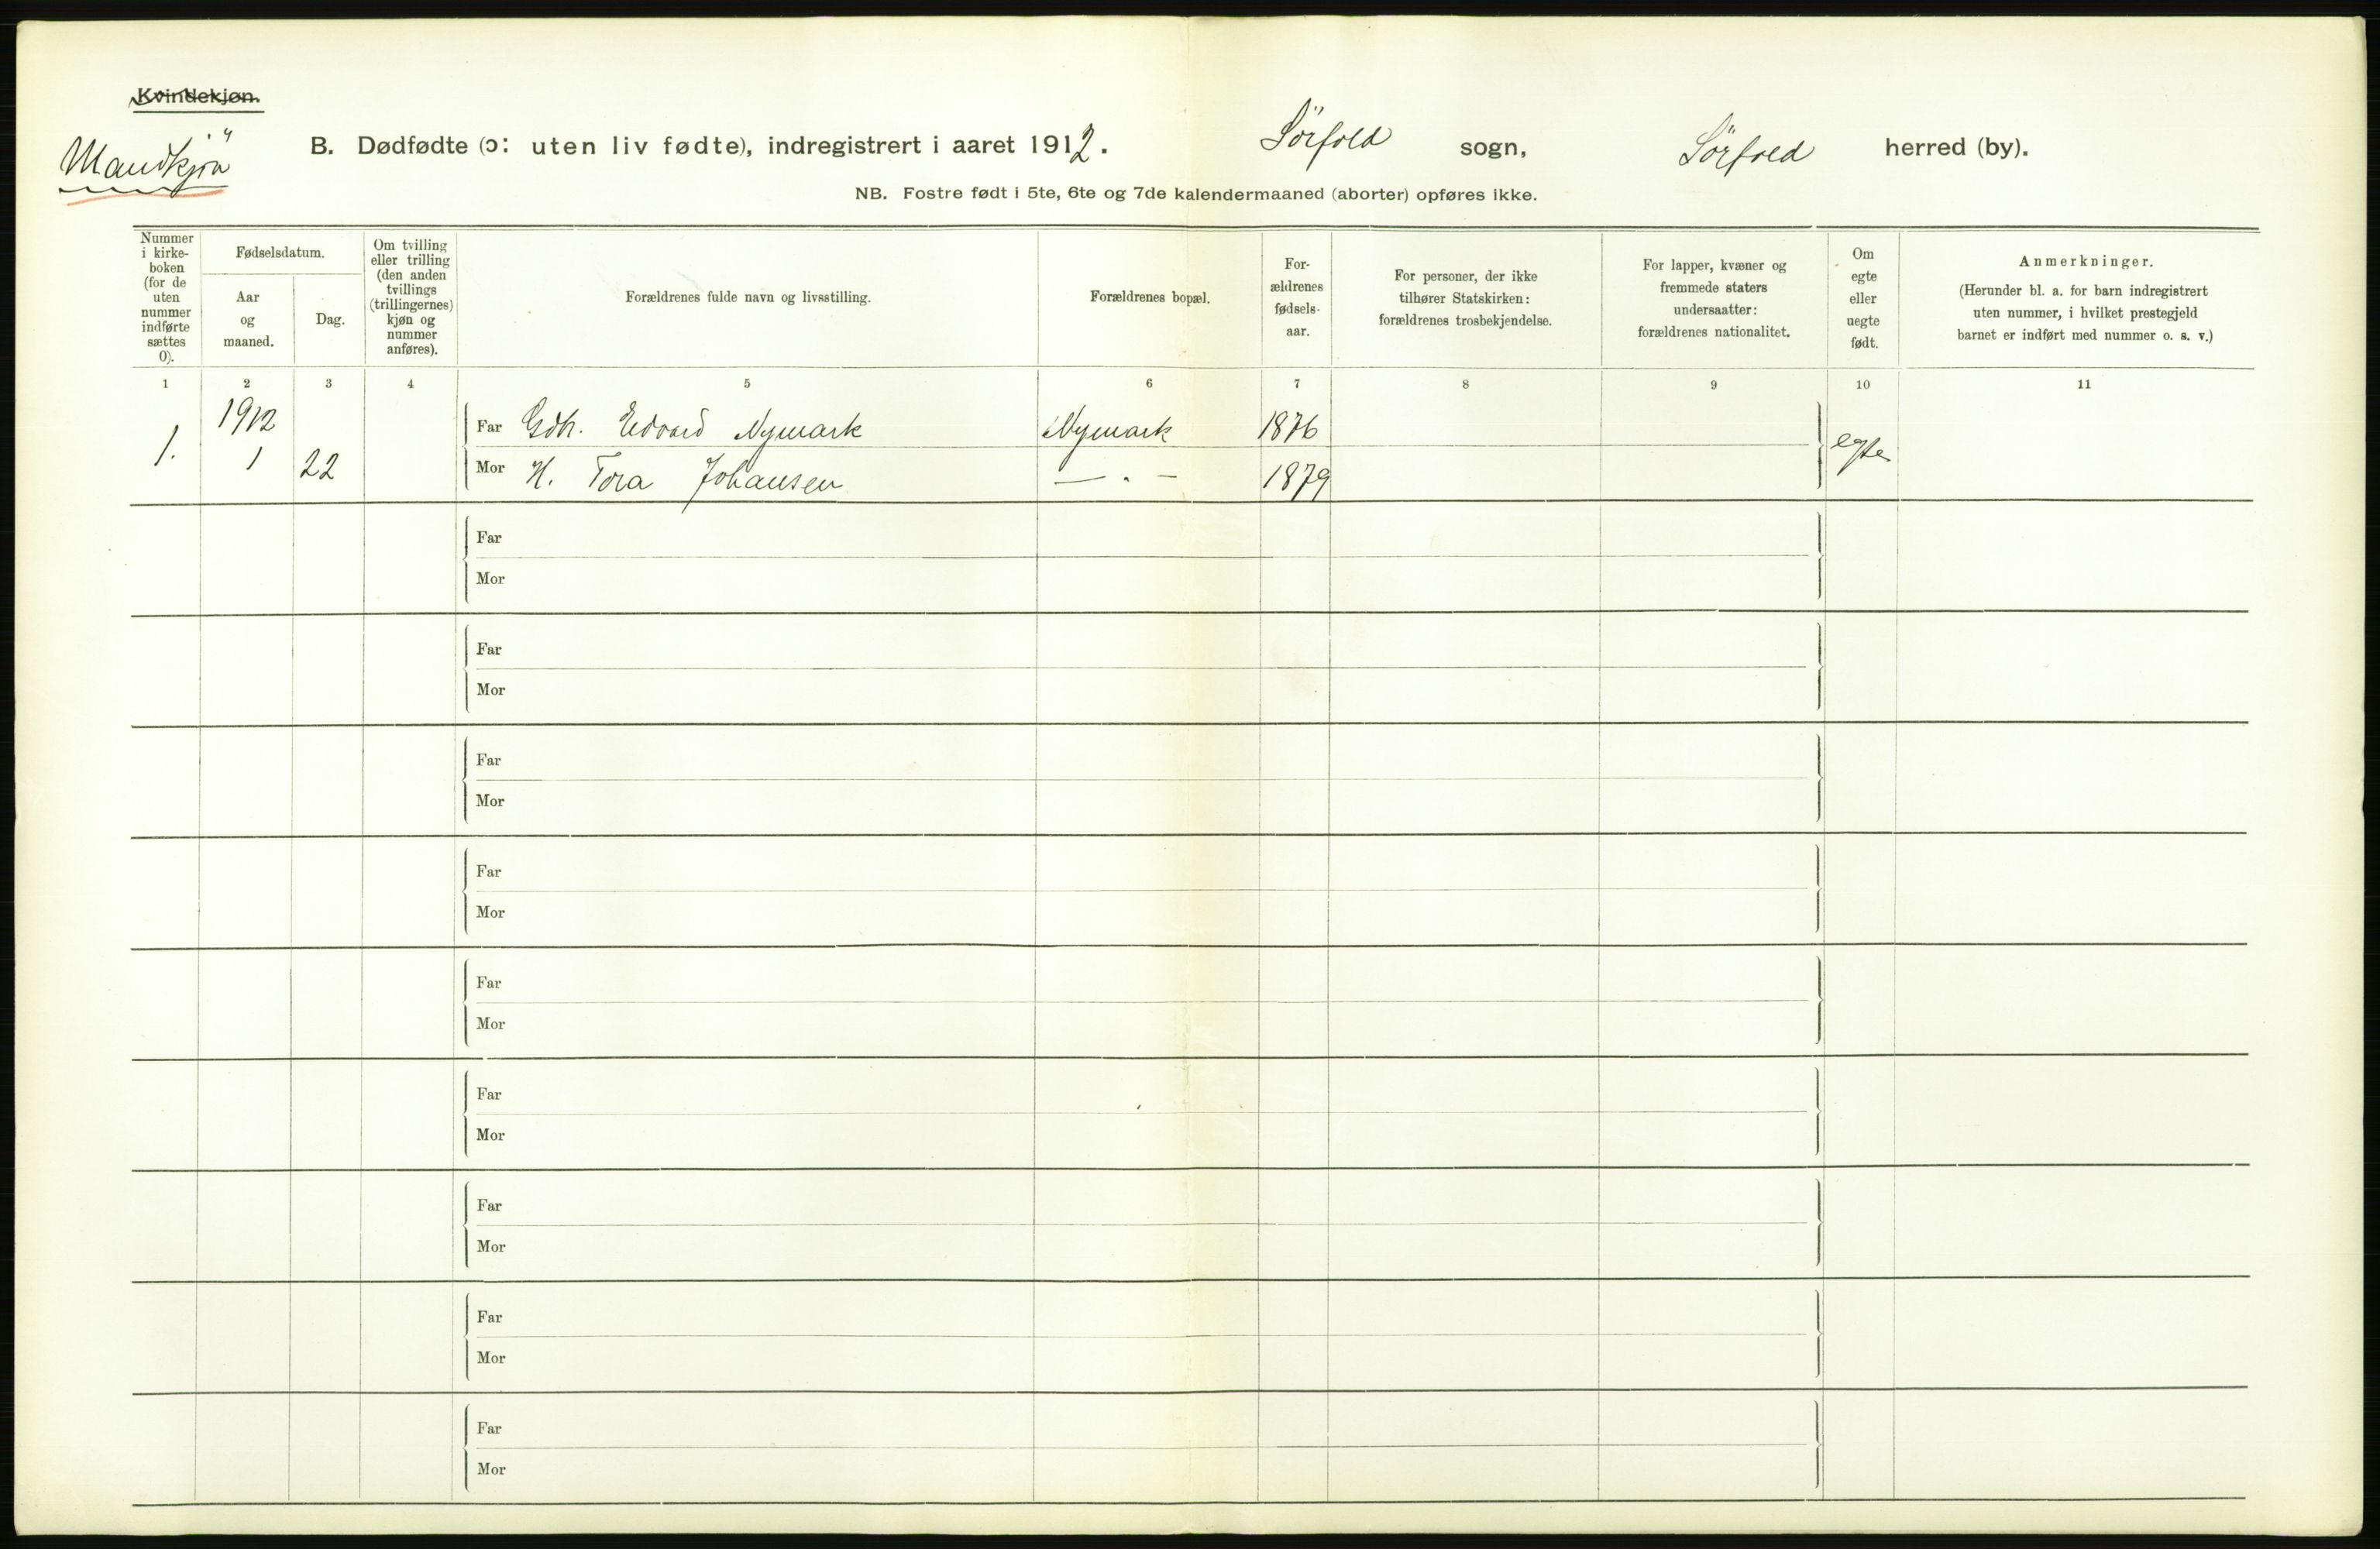 Kvindekjøn.
Mandkjøn
B. Dødfødte (ɔ: uten liv fødte), indregistrert i aaret 1912. Sørfold sogn, Sørfold herred (by).
NB. Fostre født i 5te, 6te og 7de kalendermaaned (aborter) opføres ikke.
Nummer
i kirke-
boken
(for de
uten
nummer
indførte
sættes
0).
Fødselsdatum.
Aar
og
maaned.
Dag.
Om tvilling
eller trilling
(den anden
tvillings
(trillingernes)
kjøn og
nummer
anføres).
Forældrenes fulde navn og livsstilling.
Forældrenes bopæl.
For-
ældrenes
fødsels-
aar.
For personer, der ikke
tilhører Statskirken:
forældrenes trosbekjendelse.
For lapper, kvæner og
fremmede staters
undersaatter:
forældrenes nationalitet.
Om
egte
eller
uegte
født.
Anmerkninger.
(Herunder bl. a. for barn indregistrert
uten nummer, i hvilket prestegjeld
barnet er indført med nummer o. s. v.)
1 2 3 4 5 6 7 8 9 10 11
1912
Far Gdbr. Edvard Nymark Nymark 1876
1. egte
1 22 Mor H. Tora Johansen — . — 1879
Far
Mor
Far
Mor
Far
Mor
Far
Mor
Far
Mor
Far
Mor
Far
Mor
Far
Mor
Far
Mor